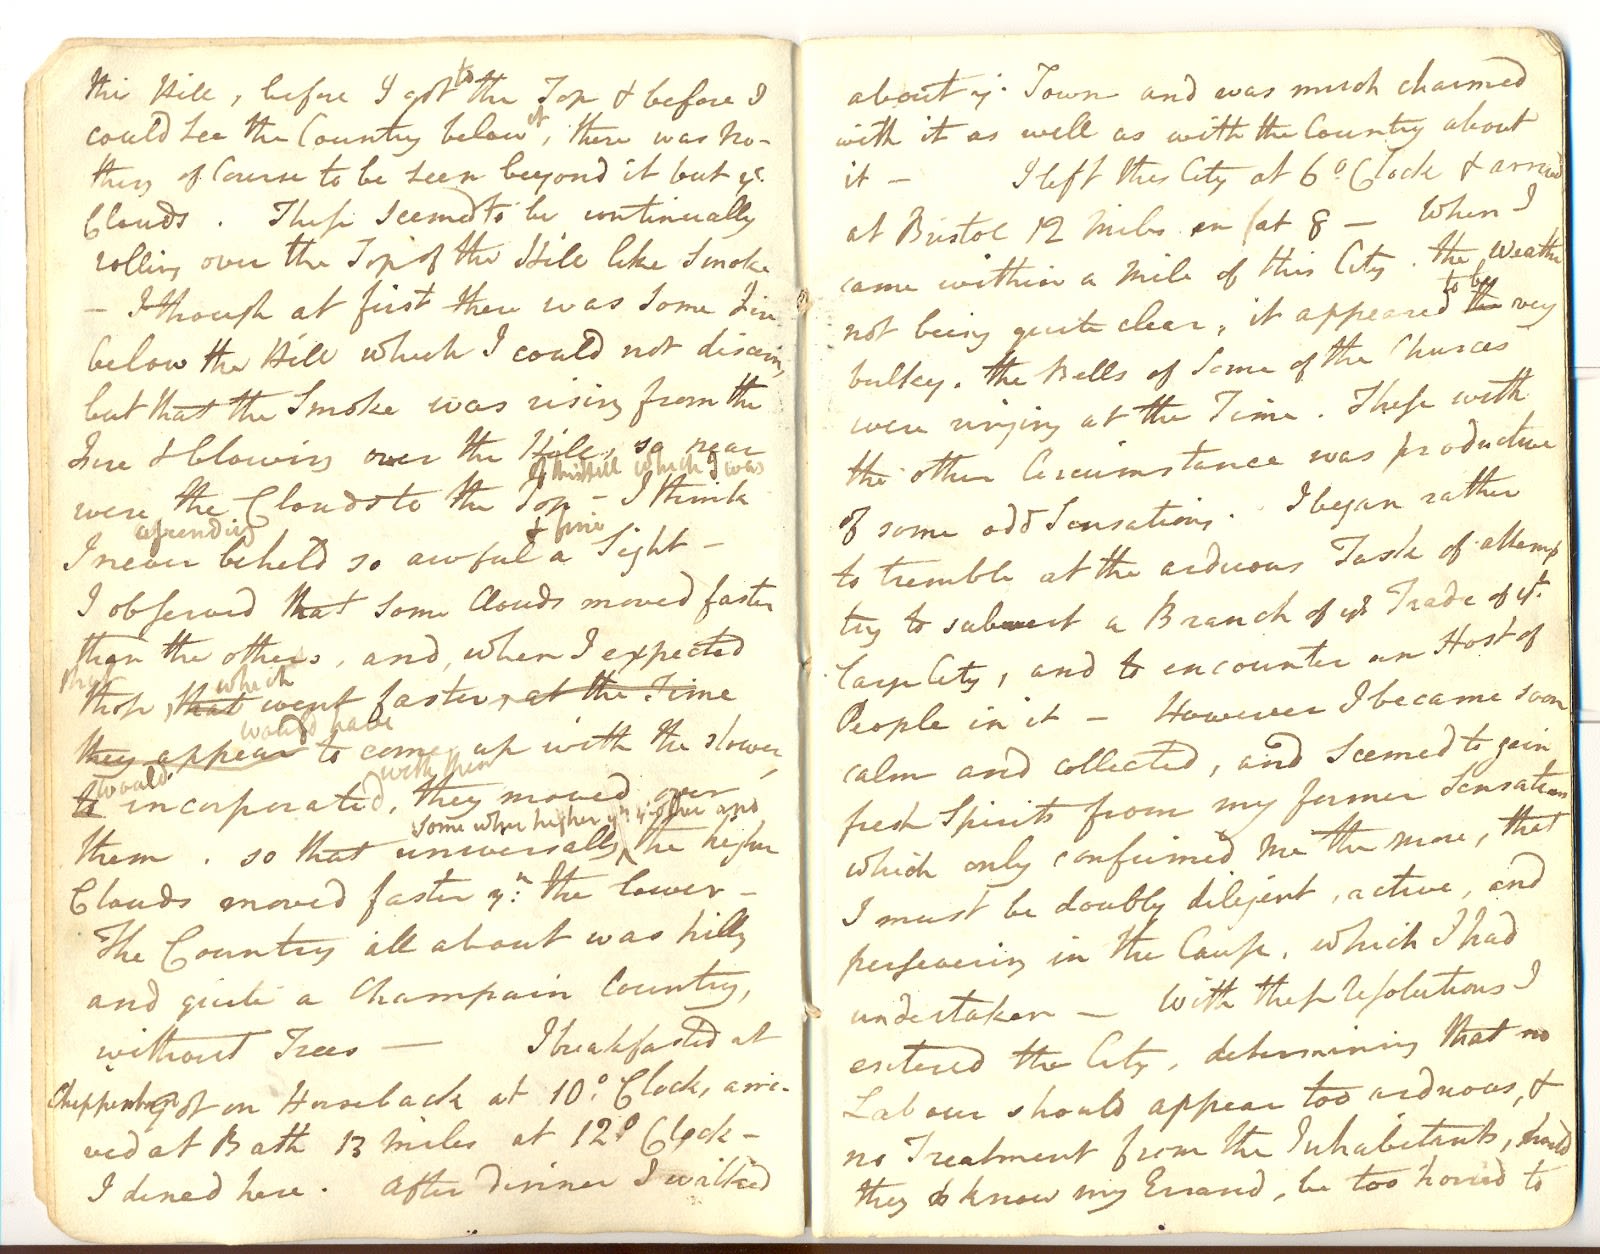 this Hill, before I got to the Top & before I
could see the Country below it, there was no-
thing of Course to be seen beyond it but ye
Clouds. These seemed to be continually
rolling over the Top of the Hill like Smoke
- I though at first there was some Fire
below the Hill which I could not discern,
but that the Smoke was rising from the
Fire & blowing over the Hill, so near
of this Hill which I was
were the Clouds to the Top - I think
ascending & fine
I never beheld so awful a Sight -
I observed that some Clouds moved faster
than the others, and, when I expected
that which
those, that went faster, at the Time
would have
they appear to come up with the slower,
would with them
to incorporated, they moved over
some were higher yn ye other and
them. so that universally the higher
Clouds moved faster yn: the lower -
The Country all about was hilly
and quite a Champain Country,
without Trees - I breakfasted at
Chippenham got on Horseback at 10 o Clock, arri-
ved at Bath 13 Miles at 12 o Clock -
I dined here. After dinner I walked
about ye Town and was much charmed
with it as well as with the Country about
it - I left this City at 6 o Clock & arrived
at Bristol 12 Miles at 8 - When I
came within a Mile of this City. the weather
to be
not being quite clear, it appeared the very
bulkey. the Bells of some of the Churces
were ringing at the Time. These with
the other Circumstance was productive
of some odd Sensations. I began rather
to tremble at the arduous Task of attemp
ting to subvert a Branch of ye Trade of yt
large City, and to encounter an Host of
People in it - However I became soon
calm and collected, and seemed to gain
fresh Spirits from my former Sensations
which only confirmed me the more, that
I must be doubly diligent, active, and
persevering in the Cause, which I had
undertaken - With these resolutions I
entered the City, determining that no
Labour should appear too arduous, &
no Treatment from the Inhabitants, should
they know my Errand, be too horrid to